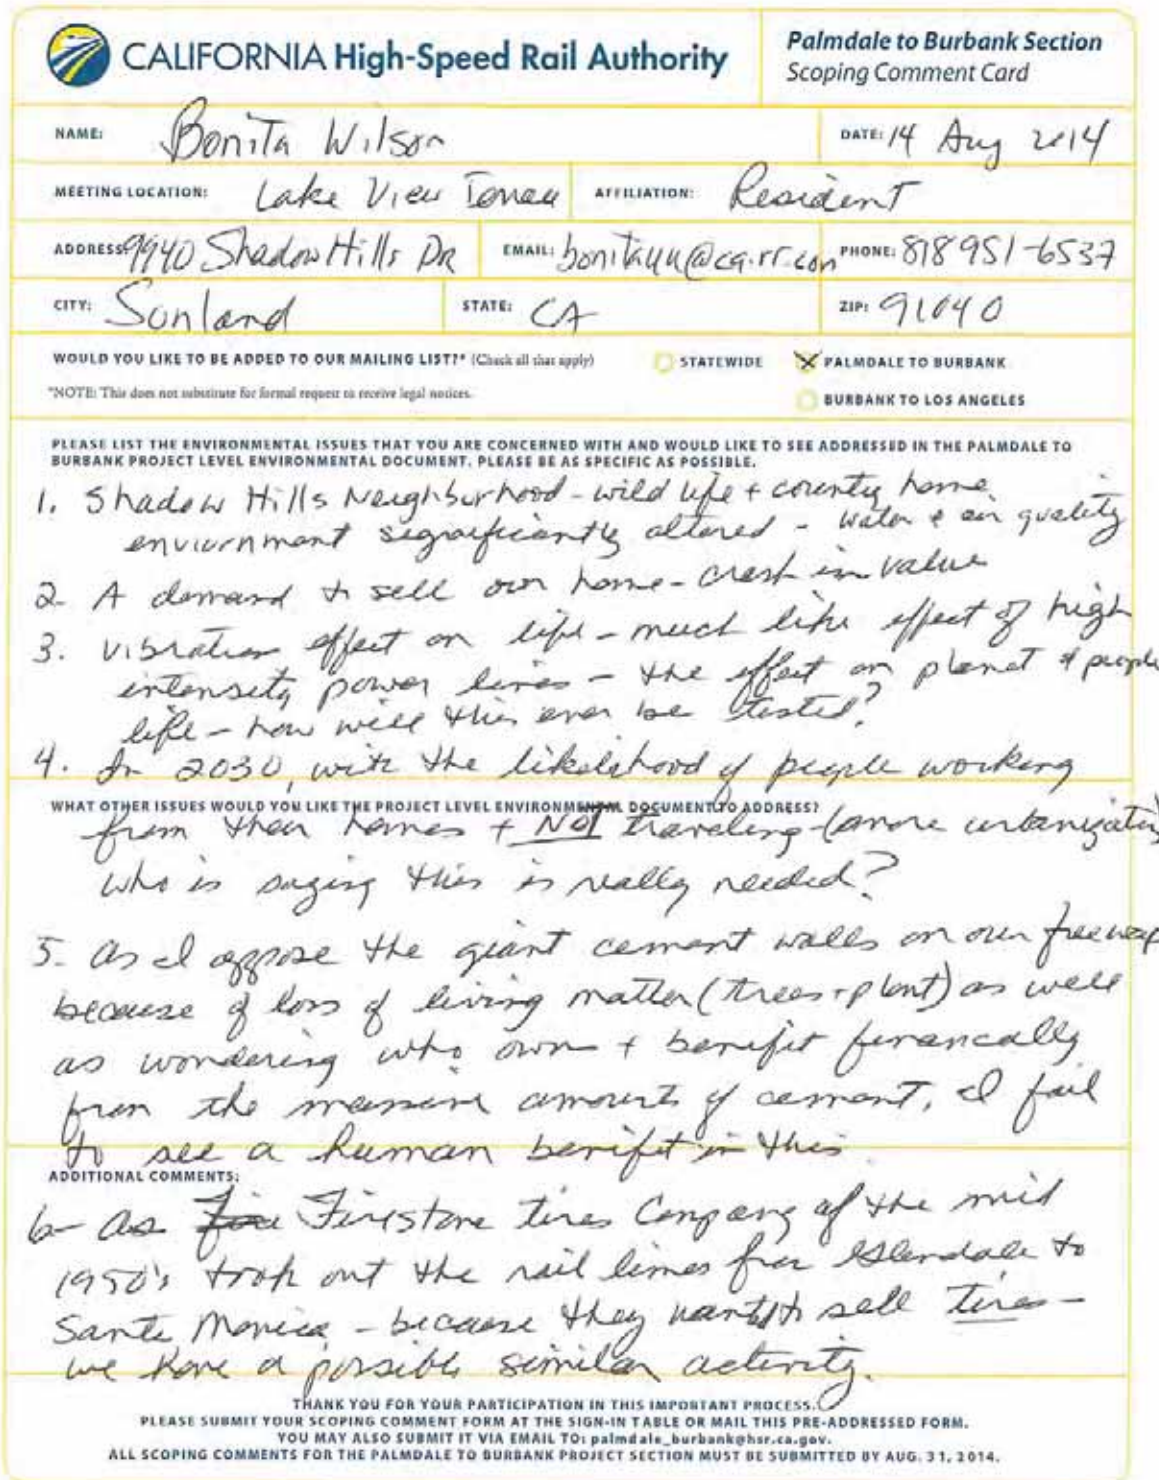 CALIFORNIA High-Speed Rail Authority
Palmdale to Burbank Section
Scoping Comment Card
NAME: Bonita Wilson
DATE: 14 Aug 2014
MEETING LOCATION: Lake View Terrace
AFFILIATION: Resident
ADDRESS: 9940 Shadow Hills DR
EMAIL: @ca.rr.com
PHONE: 818 951-6537
CITY: Sunland
STATE: CA
ZIP: 91040
WOULD YOU LIKE TO BE ADDED TO OUR MAILING LIST?* (Check all that apply)
STATEWIDE
PALMDALE TO BURBANK
*NOTE: This does not substitute for formal request to receive legal notices.
BURBANK TO LOS ANGELES
PLEASE LIST THE ENVIRONMENTAL ISSUES THAT YOU ARE CONCERNED WITH AND WOULD LIKE TO SEE ADDRESSED IN THE PALMDALE TO
BURBANK PROJECT LEVEL ENVIRONMENTAL DOCUMENT. PLEASE BE AS SPECIFIC AS POSSIBLE.
1. Shadow Hills Neighborhood - wild life + county home
enviurnment significantly altered - water & air quality
2- A demand to sell our home - crash in value
3. vibration effect on life - much like effect of high
intensity power lines - the effect on planet & people
life - how will this ever be tested?
4. In 2030, with the likelehood of people working
WHAT OTHER ISSUES WOULD YOU LIKE THE PROJECT LEVEL ENVIRONMENTAL DOCUMENT TO ADDRESS?
from their homes + NOT traveling (more urbanization)
who is saying this is really needed?
5- As I oppose the giant cement walls on our freeways
because of loss of living matter (trees + plant) as well
as wondering who own + benifit financally
from the massive amounts of cement, I fail
to see a human benifit in this
ADDITIONAL COMMENTS:
6- As Firestone tires Company of the mid
1950's took out the rail lines from Glendale to
Santa Monica - because they want to sell tires -
we have a possible similar activity.
THANK YOU FOR YOUR PARTICIPATION IN THIS IMPORTANT PROCESS.
PLEASE SUBMIT YOUR SCOPING COMMENT FORM AT THE SIGN-IN TABLE OR MAIL THIS PRE-ADDRESSED FORM.
YOU MAY ALSO SUBMIT IT VIA EMAIL TO: palmdale_burbank@hsr.ca.gov.
ALL SCOPING COMMENTS FOR THE PALMDALE TO BURBANK PROJECT SECTION MUST BE SUBMITTED BY AUG. 31, 2014.